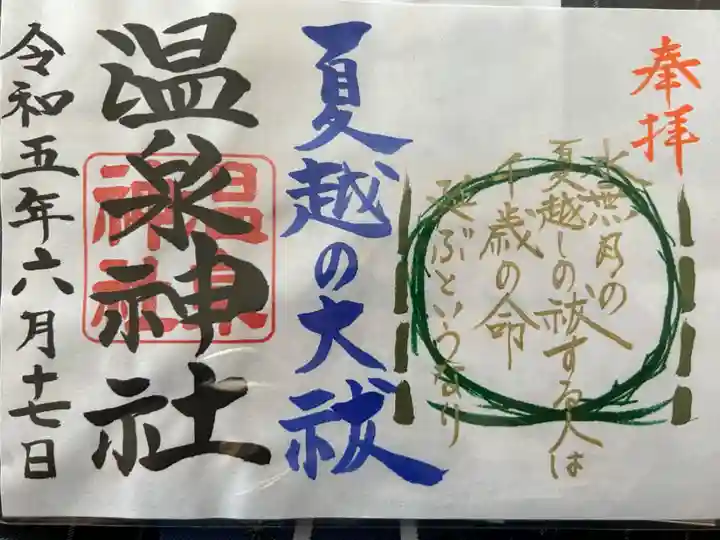 奉拝
水無月の
夏越しの祓する人は
千歳の命
延ぶというなり
夏越の大祓
温泉神社
温泉
神社
令和五年六月十七日